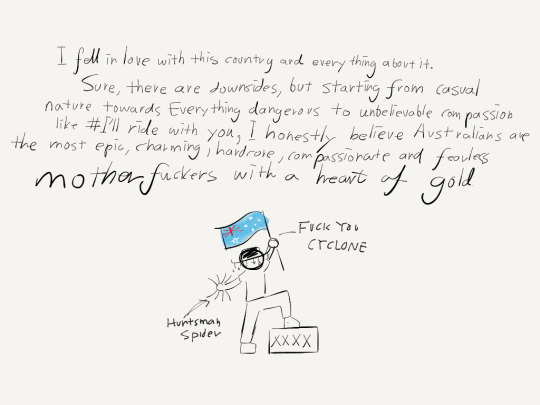 I fell in love with this country and everything about it.
Sure, there are downsides, but starting from casual
nature towards Everything dangerous to unbelievable compassion
like #I'll ride with you, I honestly believe Australians are
the most epic, charming, hardcore, compassionate and fearless
motherfuckers with a heart of gold
FUCK YOU
CYCLONE
Huntsman
Spider
XXXX